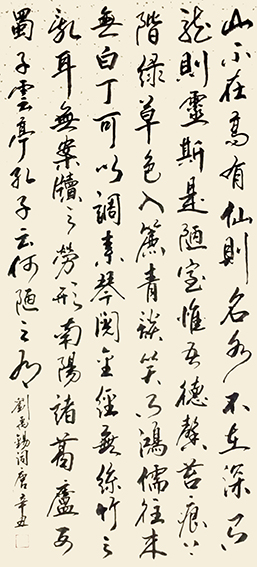 山不在高有仙則名水不在深有
龍則靈斯是陋室惟吾德馨苔痕上
階綠草色入簾青談笑有鴻儒往來
無白丁可以調素琴閱金經無絲竹之
亂耳無案牘之勞形南陽諸葛廬西
蜀子雲亭孔子云何陋之有
劉禹錫 辛丑